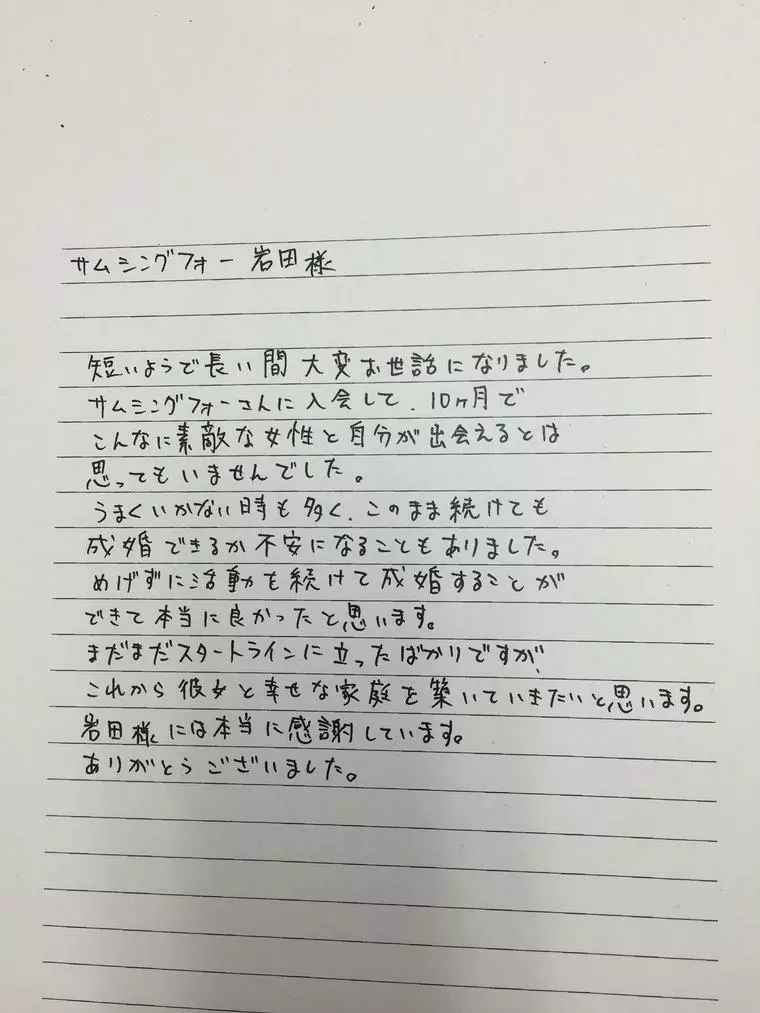 サムシングフォー 岩田様
短いようで長い間 大変お世話になりました。
サムシングフォーさんに入会して、10ヶ月で
こんなに素敵な女性と自分が出会えるとは
思ってもいませんでした。
うまくいかない時も多く、このまま続けても
成婚できるか不安になることもありました。
めげずに活動を続けて成婚することが
できて本当に良かったと思います。
まだまだスタートラインに立ったばかりですが
これから彼女と幸せな家庭を築いていきたいと思います。
岩田様には本当に感謝しています。
ありがとうございました。